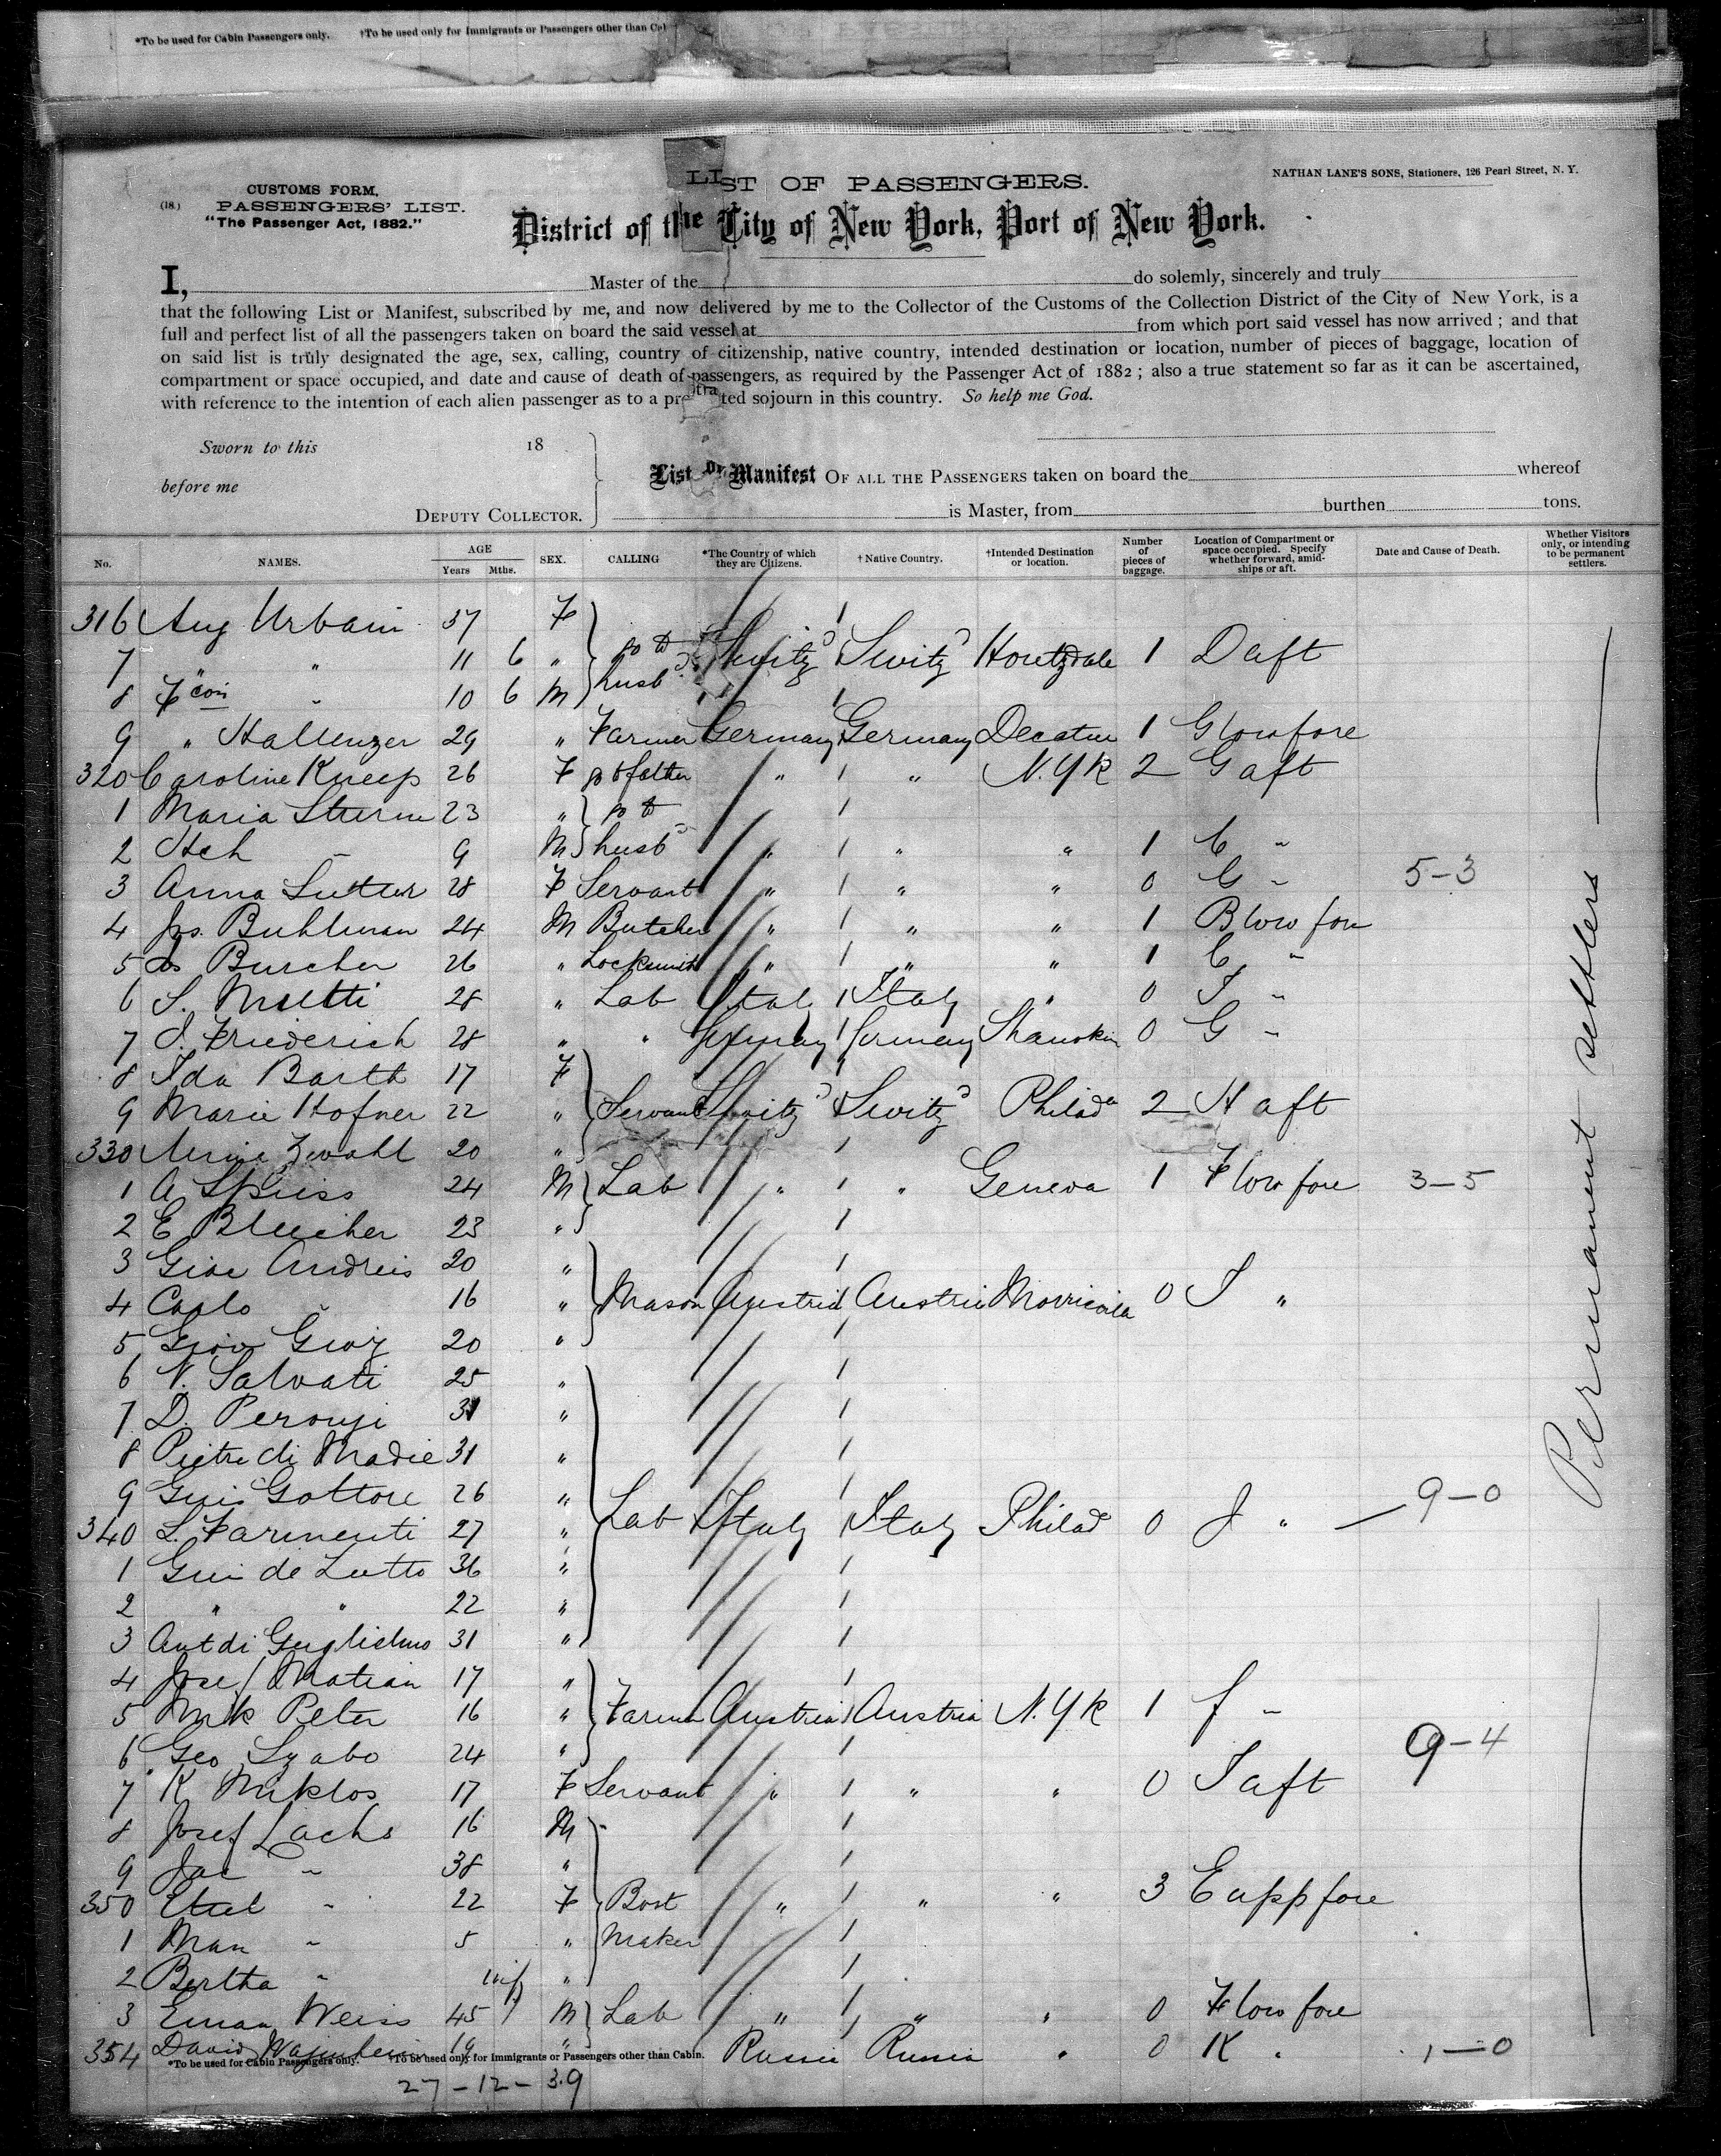 *To be used for Cabin Passengers only. †To be used only for Immigrants or Passengers other than Cabin
LIST OF PASSENGERS.
NATHAN LANE'S SONS, Stationers, 126 Pearl Street, N. Y.
CUSTOMS FORM.
(18.) PASSENGERS' LIST.
"The Passenger Act, 1882."
District of the City of New York, Port of New York.
I, Master of the do solemnly, sincerely and truly
that the following List or Manifest, subscribed by me, and now delivered by me to the Collector of the Customs of the Collection District of the City of New York, is a
full and perfect list of all the passengers taken on board the said vessel at from which port said vessel has now arrived ; and that
on said list is truly designated the age, sex, calling, country of citizenship, native country, intended destination or location, number of pieces of baggage, location of
compartment or space occupied, and date and cause of death of passengers, as required by the Passenger Act of 1882 ; also a true statement so far as it can be ascertained,
with reference to the intention of each alien passenger as to a protracted sojourn in this country. So help me God.
Sworn to this 18
before me
DEPUTY COLLECTOR.
List or Manifest OF ALL THE PASSENGERS taken on board the whereof
is Master, from burthen tons.
No. NAMES. AGE Years Mths. SEX. CALLING *The Country of which they are Citizens. † Native Country. †Intended Destination or location. Number of pieces of baggage. Location of Compartment or space occupied. Specify whether forward, amidships or aft. Date and Cause of Death. Whether Visitors only, or intending to be permanent settlers.
316 Aug Urbain 37 F
7 " " 11 6 " to husb Switzd Switzd Houtzdale 1 D aft
8 " 10 6 M
9 " Hallenzer 29 " Farmer Germany Germany Decatur 1 G low fore
320 Caroline Kneep 26 F to father " " N. Yk 2 G aft
1 Maria Sturm 23 " to
2 Hch " 9 M husb " " " 1 C "
3 Anna Sutter 28 F Servant " " " 0 G " 5-3
4 Jos. Buhlman 24 M Butcher " " " 1 B low fore
5 Burcher 26 " Locksmith " " " 1 C "
6 S. Miletti 28 " Lab Italy Italy " 0 "
7 J. Friederich 28 " " Germany Germany Shamokin 0 G "
8 Ida Barth 17 F
9 Marie Hofner 22 " Servant Switzd Switzd Philada 2 H aft
330 Zwahl 20 "
1 A Spiess 24 M Lab " " Geneva 1 F low fore 3-5
2 E Bleicher 23 "
3 Giac Andreis 20 "
4 Carlo " 16 " Mason Austria Austria 0 "
5 Giov 20 "
6 N. Salvati 25 "
7 D. Peronzi 31 "
8 Pietro di Madie 31 "
9 Gius Gottore 26 " Lab Italy Italy Philad 0 J " 9-0
340 L. Farinenti 27 "
1 de Lutto 36 "
2 " " 22 "
3 Ant di Guglielmo 31 "
4 Josef Matian 17 "
5 Mik Peter 16 " Farmer Austria Austria N. Yk 1 f "
6 Geo Szabo 24 " 9-4
7 K Miklos 17 F Servant " " " 0 aft
8 Josef Lachs 16 M
9 Jac " 38 "
350 " 22 F Boot " " " 3 E upp fore
1 " 5 " Maker
2 Bertha " inf "
3 Eman Weiss 45 M Lab " " " 0 F low fore
354 David 19 " Russia Russia " 0 K " 1-0
*To be used for Cabin Passengers only. †To be used only for Immigrants or Passengers other than Cabin.
27-12-39
Permanent settlers